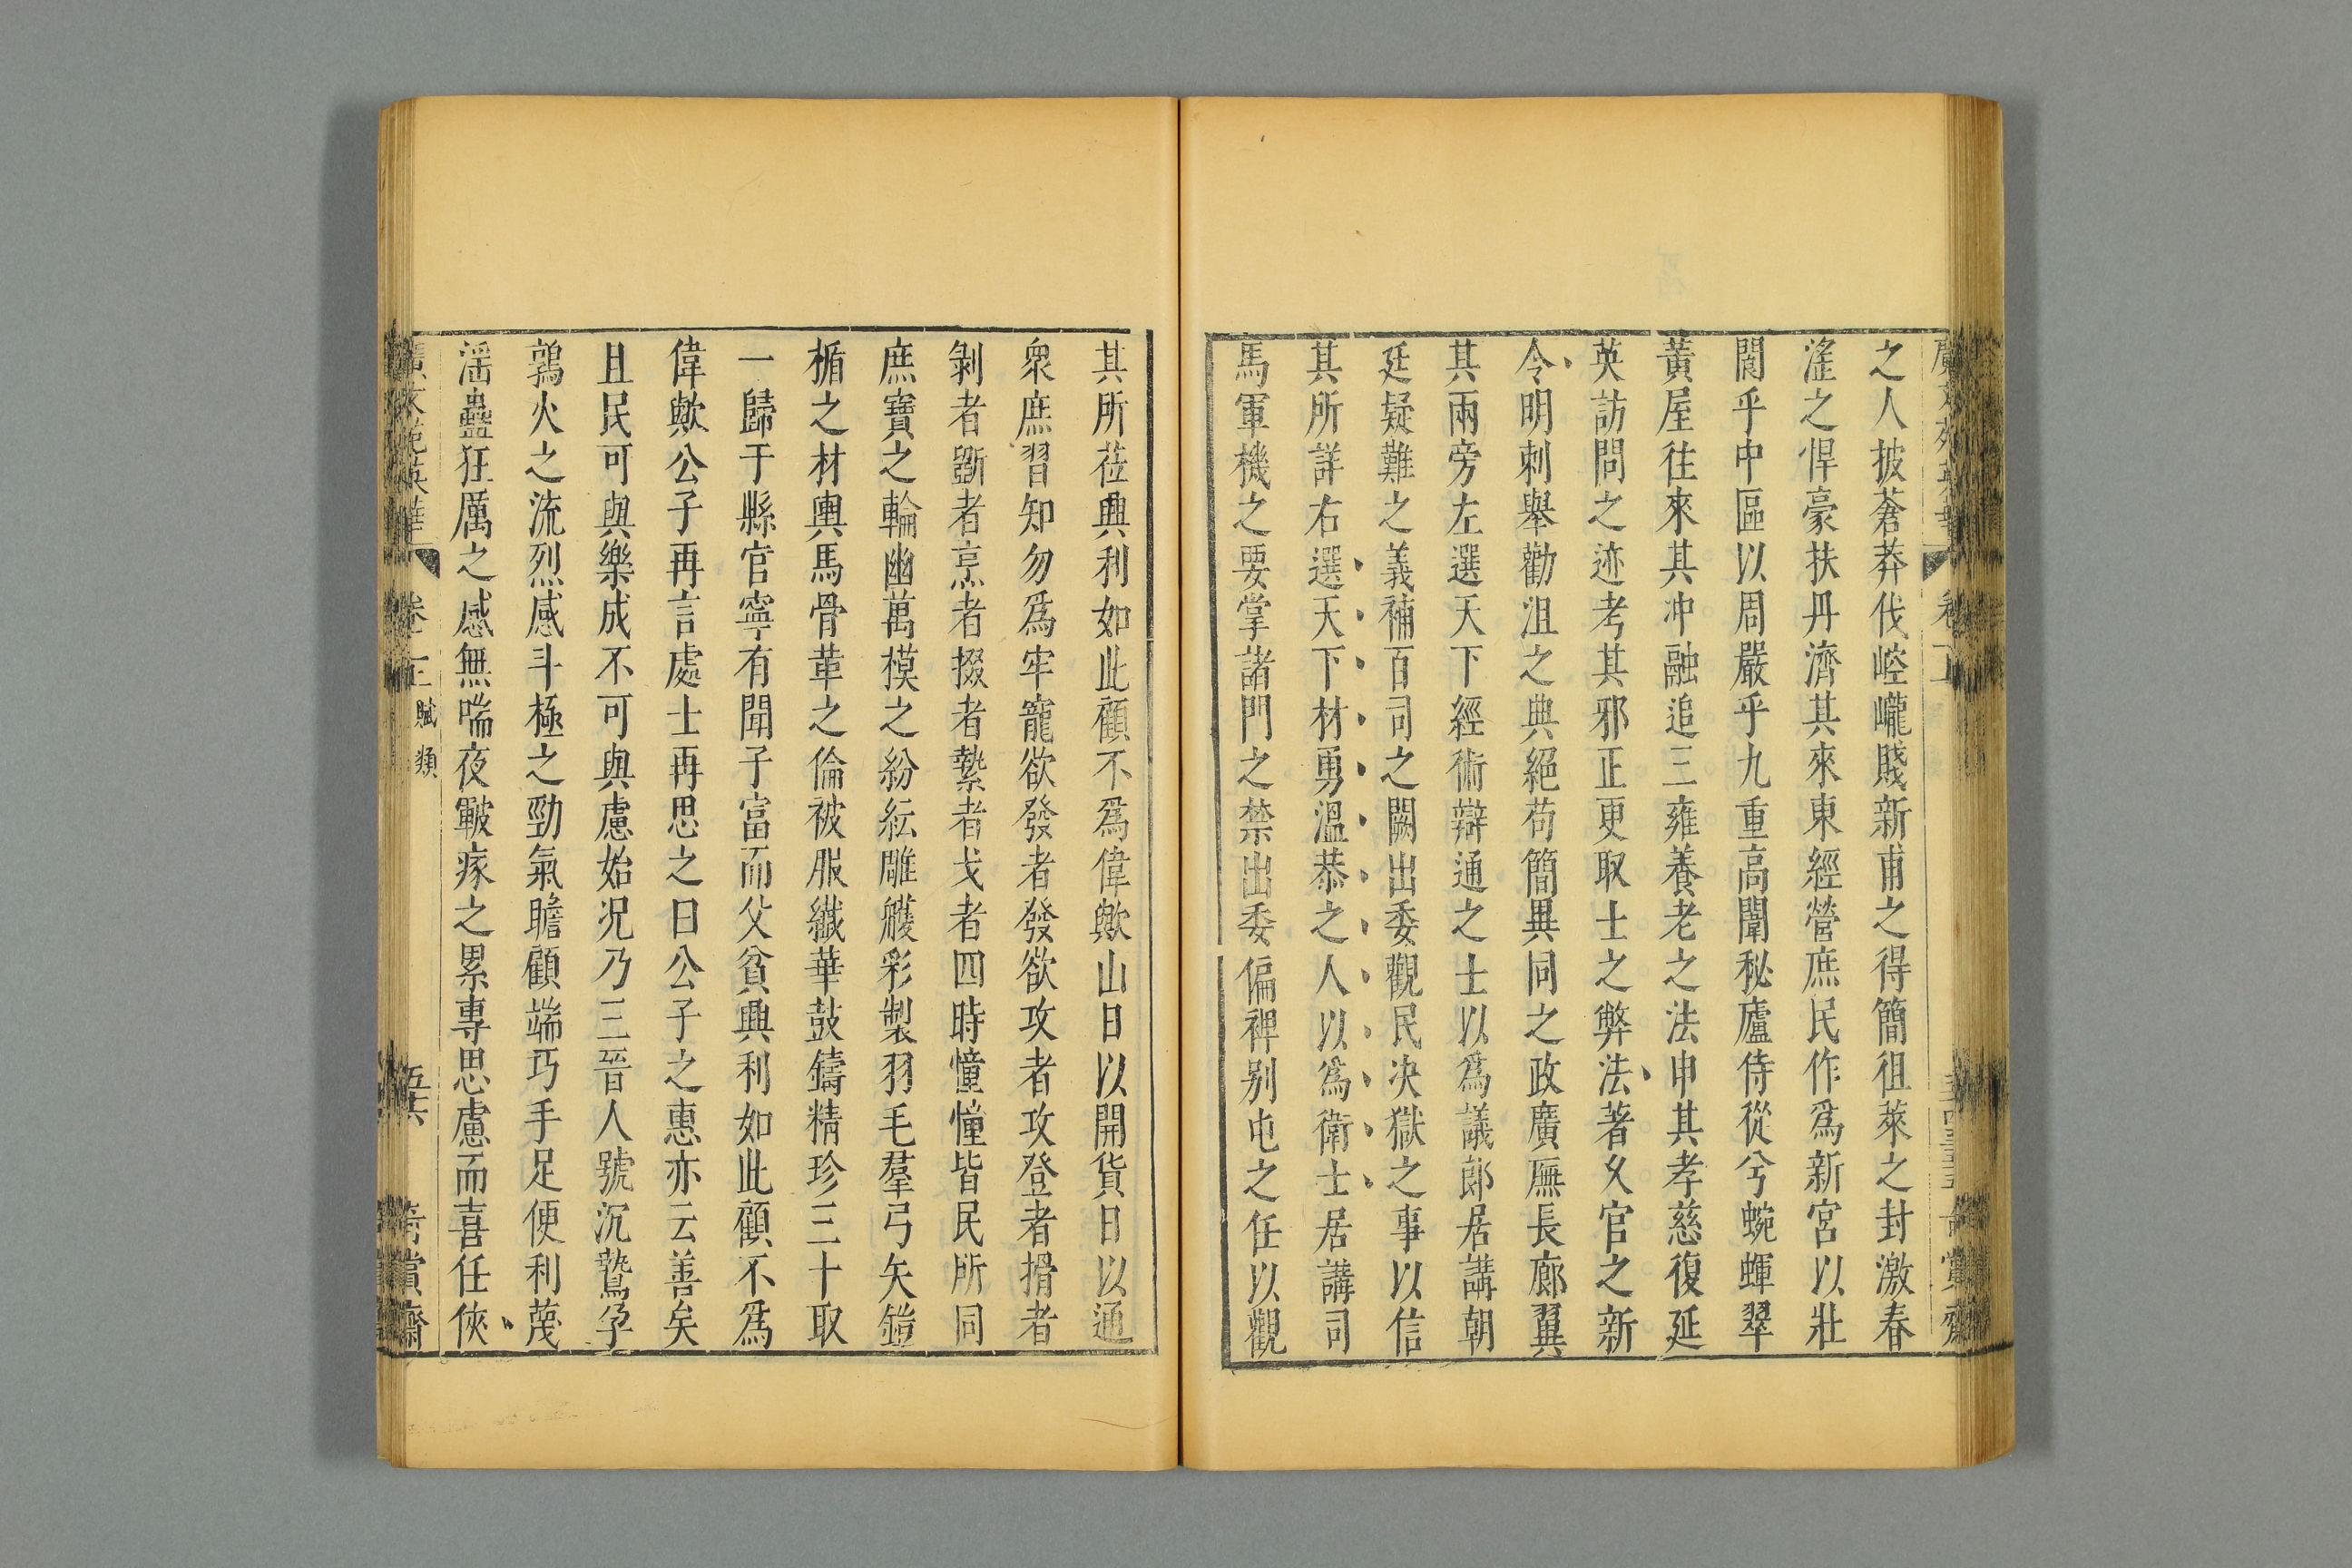 之人披蒼莽伐崆巄賤新甫之得簡徂萊之封激春
滛之悍豪扶丹濟其來東經營庶民作爲新宮以壯
閎乎中區以周嚴乎九重高闈秘廬侍從兮蜿蟬翠
黃屋往來其冲融追三雍養老之法申其孝慈復延
英訪問之迹考其邪正更取士之弊法著乂官之新
令明刺舉勸沮之典絕苟簡異同之政廣廡長廊翼
其兩旁左選天下經術辯通之士以爲議郎居講朝
廷疑難之義補百司之闕出委觀民决獄之事以信
其所詳右選天下材勇溫恭之人以爲衛士居講司
馬軍機之要掌諸門之禁出委偏裨别屯之任以觀
其所莅興利如此顧不爲偉歟山日以開貨日以通
衆庶習知勿爲牢寵欲發者發欲攻者攻登者搰者
剝者斵者烹者掇者贄者戈者四時憧憧皆民所同
庶寶之輪幽萬模之紛紜雕䕶彩製羽毛羣弓矢鎧
楯之材輿馬骨革之倫被服纖華鼓鑄精珍三十取
一歸于縣官寧有聞子富而父貧興利如此顧不爲
偉歟公子再言處士再思之曰公子之惠亦云善矣
且民可與樂成不可與慮始况乃三晉人號沉鷙孕
鶉火之流烈感斗極之勁氣瞻顧端巧手足便利蔑
滛蠱狂厲之感無喘夜皸瘃之累專思慮而喜任俠
卷 上 賦類 五六 奇賞齋